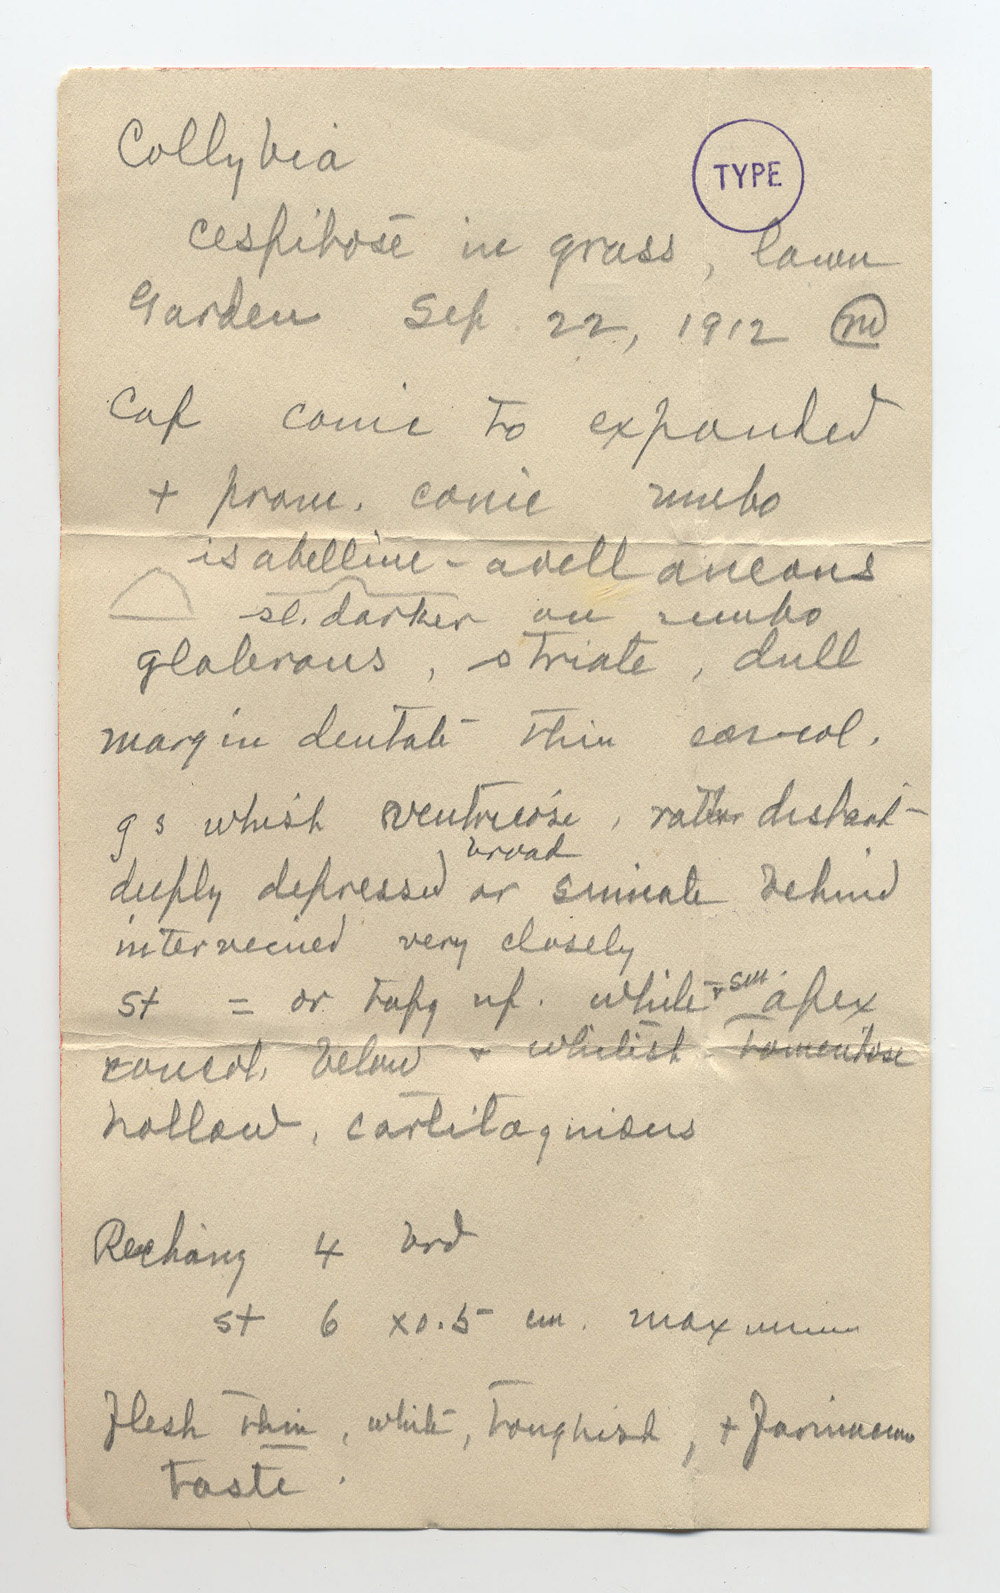 Collybia
TYPE
cespitose in grass, lawn
Garden Sep. 22, 1912
Cap conic to expanded
+ prom. conic umbo
isabelline - avellaneous
sl. darker on umbo
glabrous, striate, dull
margin dentate thin concol.
gs whish ventricose, rather distant
broad
deeply depressed or sinuate behind
interveined very closely
st = or tapg up. white apex
concol. below + whitish tomentose
hollow, cartilaginous
Reching 4 brd
st 6 x 0.5 cm. maximum
Flesh thin, white, toughish, + farinaceous
taste.